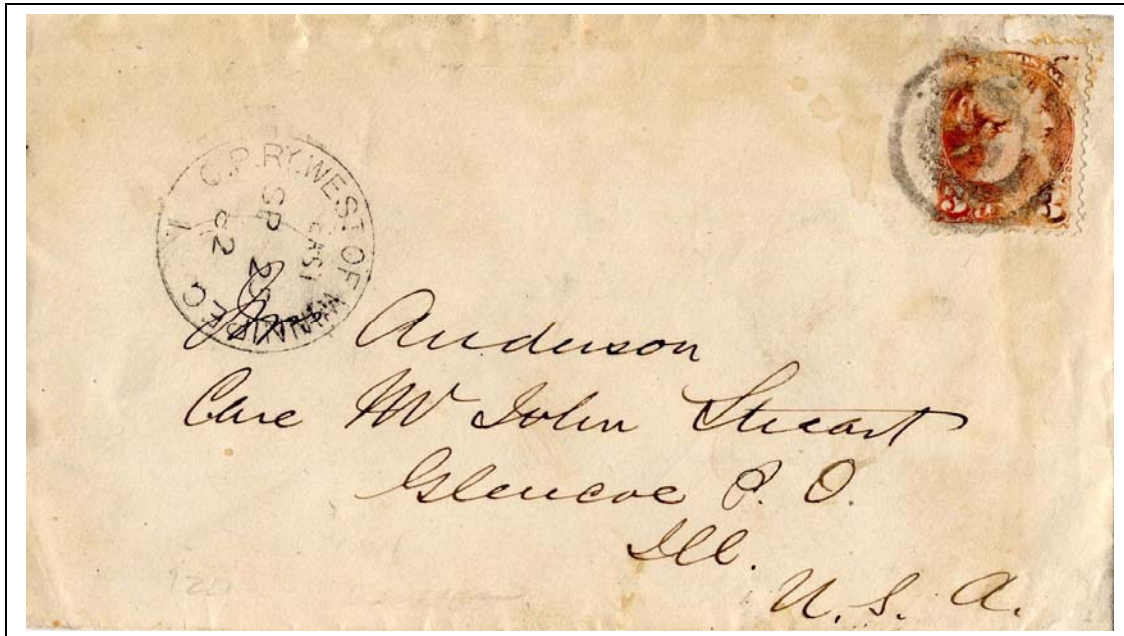 C.P.RY. WEST OF WINNIPEG
EAST
SP 2
82
Anderson
Care Mr John Stuart
Glencoe P. O.
Ill.
U. S. A.
3
120